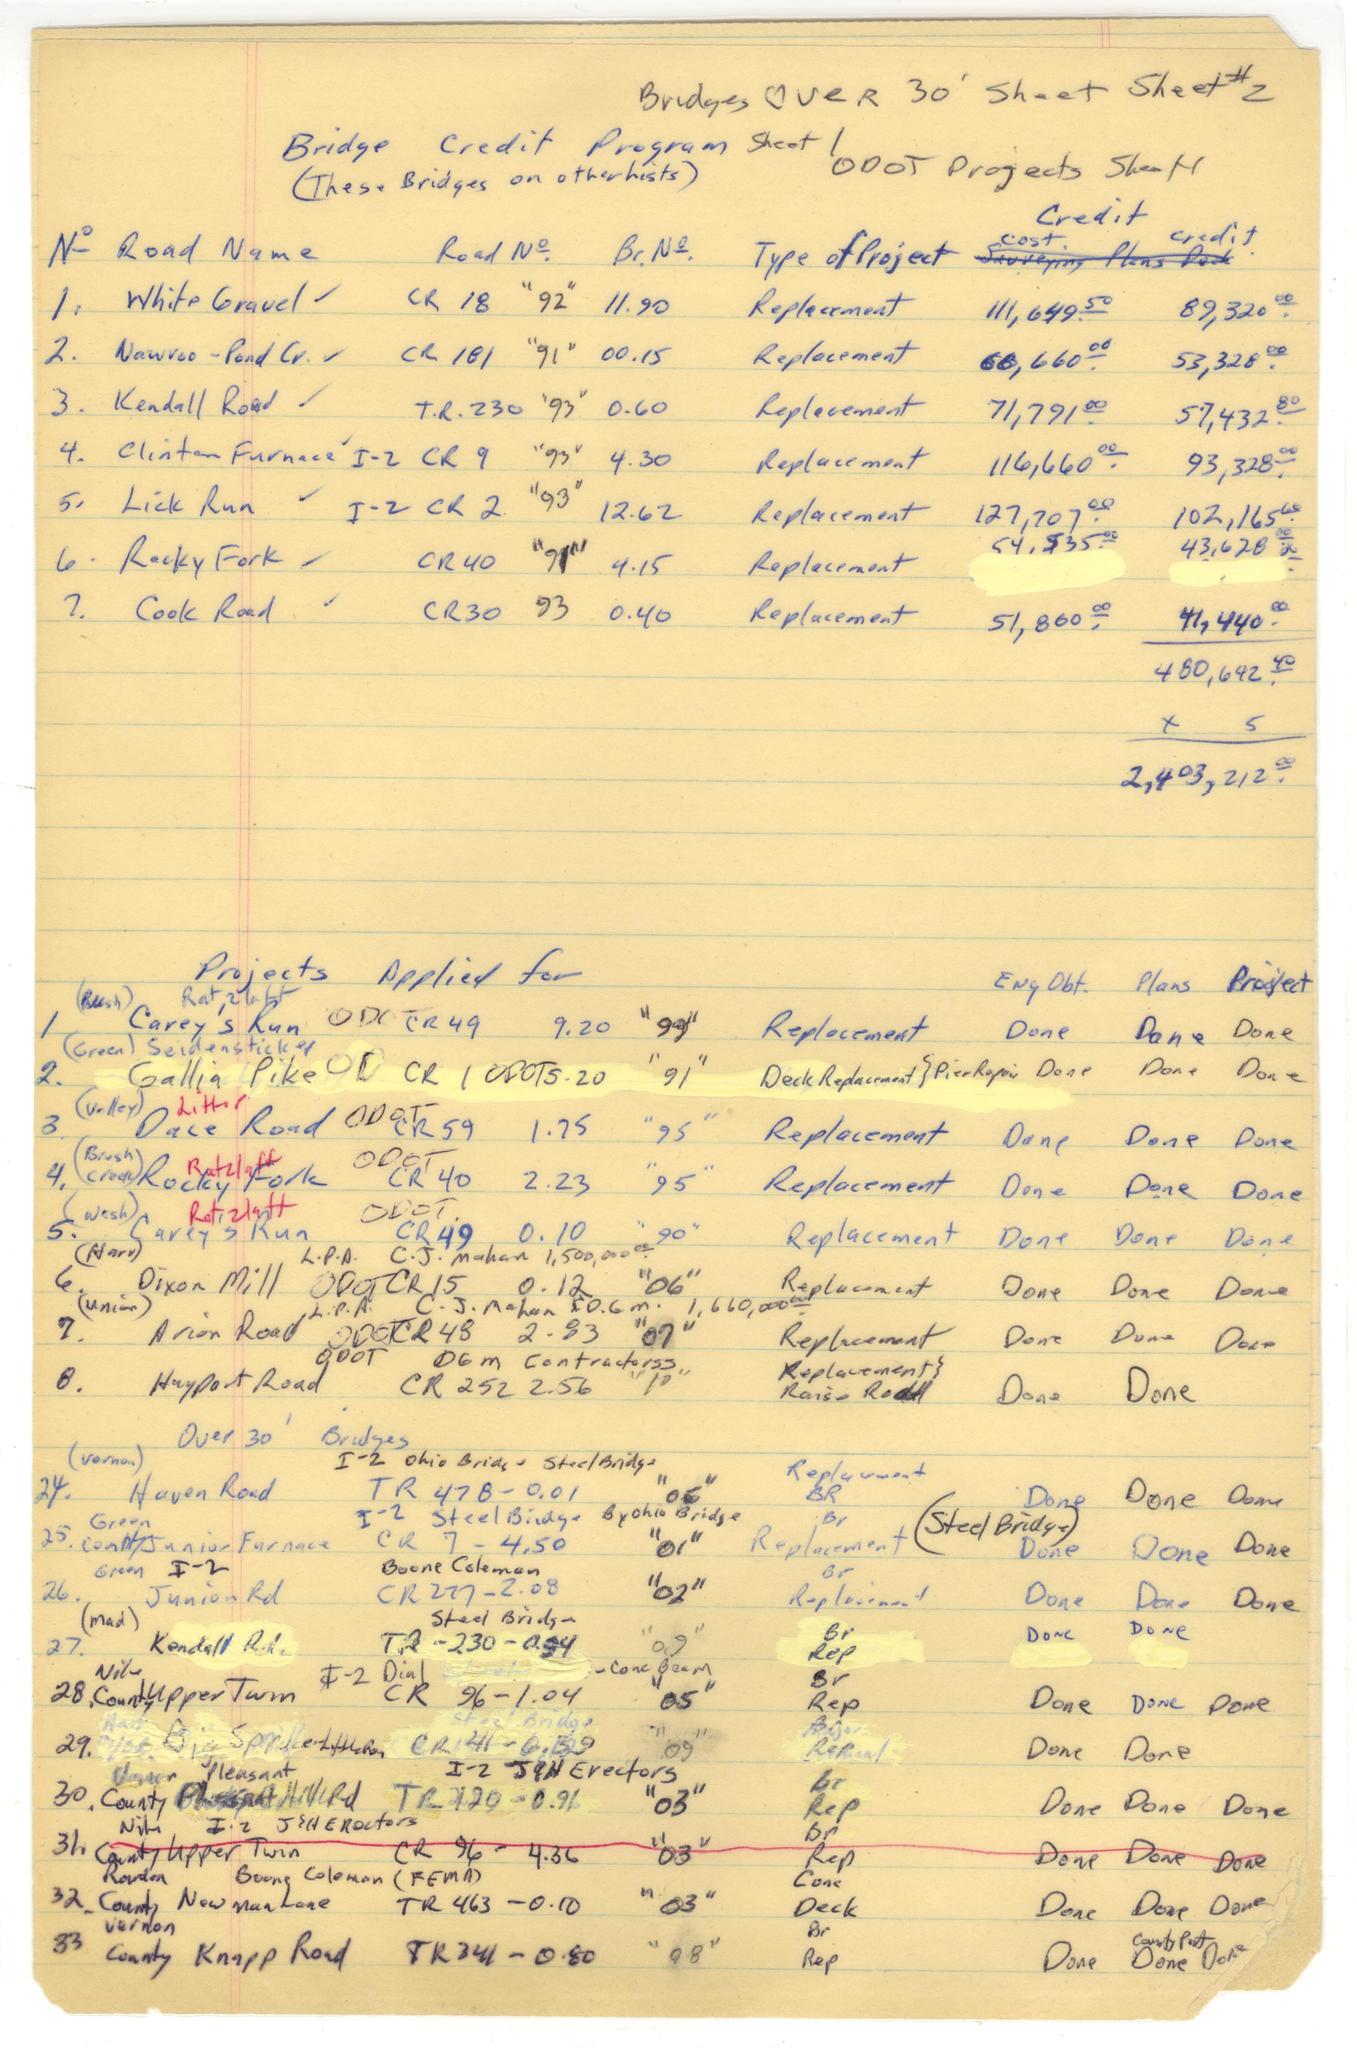 Bridges OVER 30' Sheet Sheet #2
Bridge Credit Program Sheet 1
(These Bridges on other lists) ODOT Projects Sheet 1
Credit
Nº Road Name Road Nº. Br. Nº. Type of Project Cost. Credit
Surveying Plans Deck
1. White Gravel ✓ CR 18 "92" 11.90 Replacement 111,649.50 89,320.00
2. Nawvoo - Pond Cr. ✓ CR 181 "91" 00.15 Replacement 66,660.00 53,328.00
3. Kendall Road ✓ T.R. 230 "93" 0.60 Replacement 71,791.00 57,432.80
4. Clinton Furnace ✓ I-2 CR 9 "93" 4.30 Replacement 116,660.00 93,328.00
5. Lick Run ✓ I-2 CR 2 "93" 12.62 Replacement 127,707.00 102,165.60
6. Rocky Fork ✓ CR 40 "91" 4.15 Replacement 54,535.00 43,628.00
7. Cook Road ✓ CR30 93 0.40 Replacement 51,800.00 41,440.00
480,642.40
x 5
2,403,212.00
Projects Applied for Eng Obt. Plans Project
(Rush) Ratzlaff
1 Carey's Run ODOT CR 49 9.20 "99" Replacement Done Done Done
(Green) Seidensticker
2. Gallia Pike OD CR 1 ODOT 5.20 "91" Deck Replacement & Pier Repair Done Done Done
(Valley) Litter
3. Dace Road ODOT CR 59 1.75 "95" Replacement Done Done Done
(Brush Creek) Ratzlaff
4. Rocky Fork ODOT CR 40 2.23 "95" Replacement Done Done Done
(Wash) Ratzlaff
5. Carey's Run ODOT CR 49 0.10 "90" Replacement Done Done Done
(Harr) L.P.A. C.J. Mahan 1,500,000.00
6. Dixon Mill ODOT CR 15 0.12 "06" Replacement Done Done Done
(Union) L.P.A. C.J. Mahan 1,660,000.00
7. Arion Road ODOT CR 48 2.83 "07" Replacement Done Done Done
ODOT DGM Contractorss
8. Hayport Road CR 252 2.56 "10" Replacement & Raise Road Done Done
Over 30' Bridges
(Vernon) I-2 Ohio Bridge Steel Bridge
24. Haven Road TR 478 - 0.01 "06" Replacement BR Done Done Done
Green I-2 Steel Bridge By Ohio Bridge Br
25. County Junior Furnace CR 7 - 4.50 "01" Replacement (Steel Bridge) Done Done Done
Green I-2 Boone Coleman Br
26. Junior Rd CR 277 - 2.08 "02" Replacement Done Done Done
(Mad) Steel Bridge
27. Kendall Rd. TR - 230 - 0.94 "09" Br Rep Done Done
Nile I-2 Dial - Conc Beam Br
28. County Upper Twin CR 96 - 1.04 "05" Rep Done Done Done
Steel Bridge
29. CR 141 - "09" Done Done
Vernon Pleasant I-2 J&H Erectors Br
30. County Rd TR - 0.96 "03" Rep Done Done Done
Nile I-2 J&H Erectors Br
31. County Upper Twin CR 96 - 4.36 "03" Rep Done Done Done
Rardon Boone Coleman (FEMA) Conc
32. County Newman Lane TR 463 - 0.10 "03" Deck Done Done Done
Vernon Br County Part
33 County Knapp Road TR 341 - 0.80 "98" Rep Done Done Done